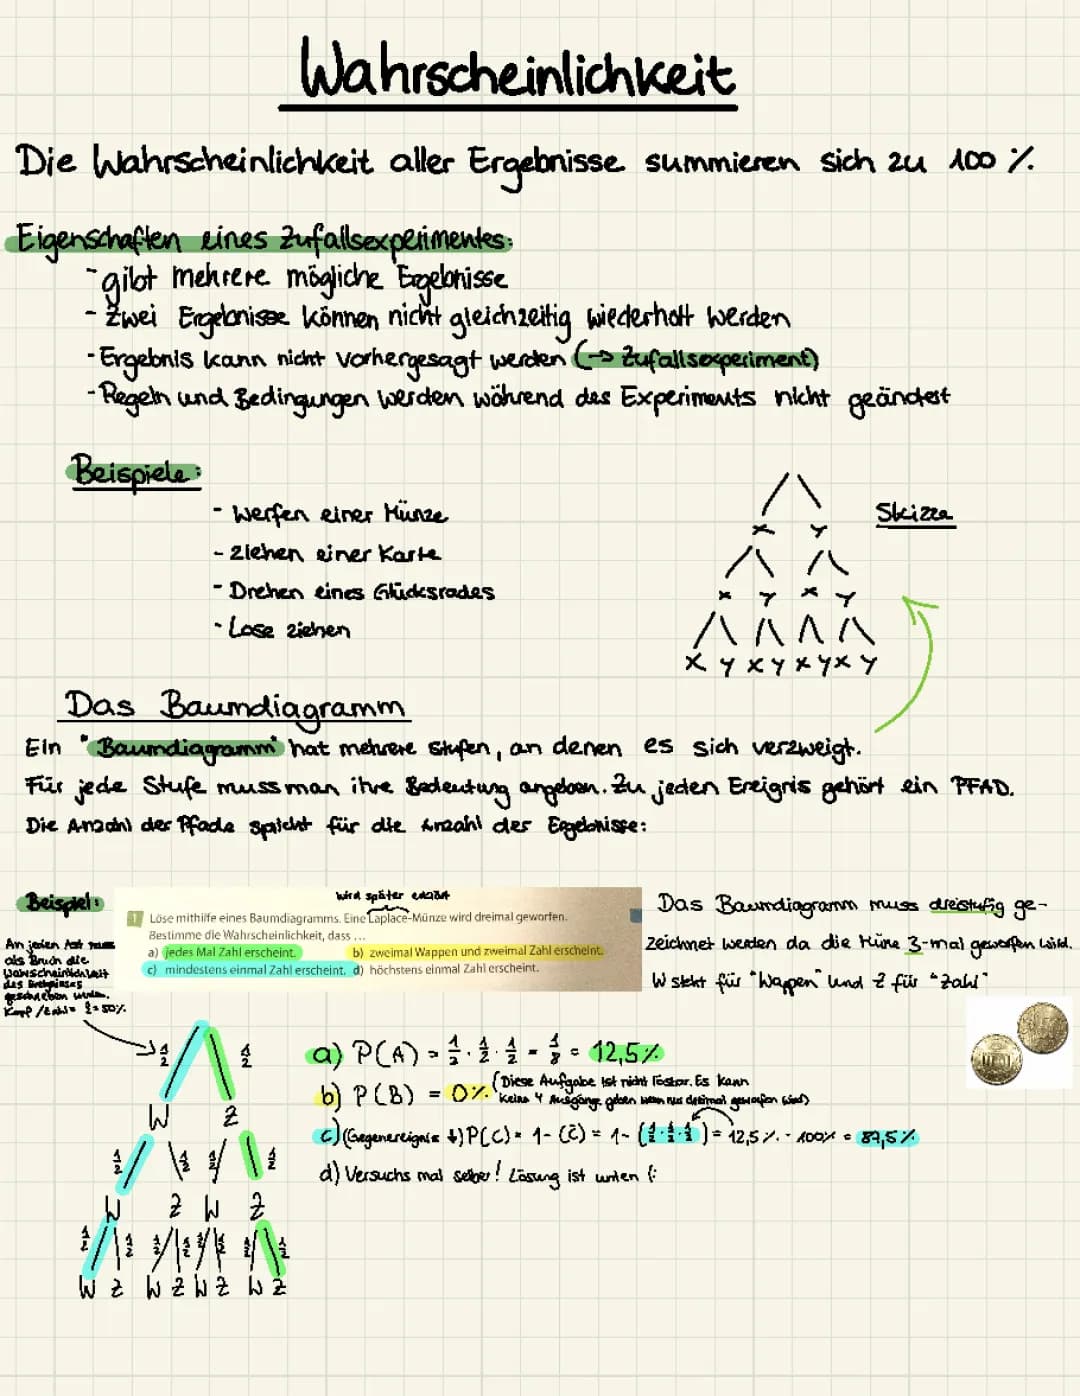 Wahrscheinlichkeit
Die Wahrscheinlichkeit aller Ergebnisse summieren sich zu 100 %.
Eigenschaften eines Zufallsexperimentes:
- gibt mehrere mögliche Ergebnisse
- zwei Ergebnisse können nicht gleichzeitig wiederholt werden
- Ergebnis kann nicht vorhergesagt werden (→ Zufallsexperiment)
- Regeln und Bedingungen werden während des Experiments nicht geändert
Beispiele:
- Werfen einer Münze
- Ziehen einer Karte
- Drehen eines Glücksrades
- Lose ziehen
Skizze
x y
x y x y
x y x y x y x y
Das Baumdiagramm
Ein "Baumdiagramm" hat mehrere Stufen, an denen es sich verzweigt.
Für jede Stufe muss man ihre Bedeutung angeben. Zu jeden Ereignis gehört ein PFAD.
Die Anzahl der Pfade spricht für die Anzahl der Ergebnisse:
Beispiel:
wird später erklärt
1 Löse mithilfe eines Baumdiagramms. Eine Laplace-Münze wird dreimal geworfen.
Bestimme die Wahrscheinlichkeit, dass ...
a) jedes Mal Zahl erscheint. b) zweimal Wappen und zweimal Zahl erscheint.
c) mindestens einmal Zahl erscheint. d) höchstens einmal Zahl erscheint.
Das Baumdiagramm muss dreistufig ge-
zeichnet werden da die Müne 3-mal geworfen wird.
W steht für "Wappen" und Z für "Zahl"
An jeden Ast muss
als Bruch die
Wahrscheinlichkeit
des Ereignisses
geschrieben werden.
Kopf/Zahl = 1/2 = 50%
1/2 1/2
W Z
1/2 1/2 1/2 1/2
W Z W Z
1/2 1/2 1/2 1/2 1/2 1/2 1/2
W Z W Z W Z W Z
a) P(A) = 1/2 · 1/2 · 1/2 = 1/8 = 12,5%
b) P(B) = 0%. (Diese Aufgabe ist nicht lösbar. Es kann
keine 4 Ausgänge geben wenn nur dreimal geworfen wird)
c) (Gegenereignis ↓) P(C) = 1- (C̄) = 1- (1/2 · 1/2 · 1/2) = 12,5 %. - 100% = 87,5%
d) Versuchs mal selber! Lösung ist unten (: